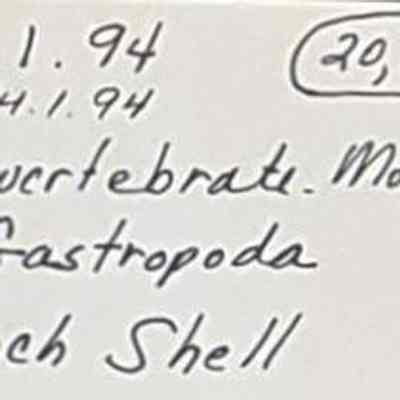 1.94 20,
4.1.94
vertebrate. Mo
Gastropoda
ch Shell